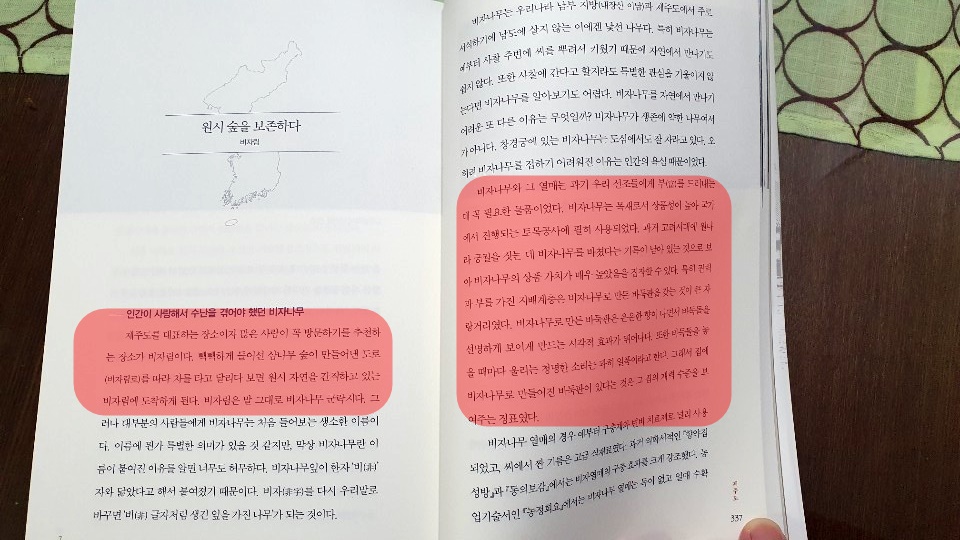 원시 숲을 보존하다
비자림
인간이 사랑해서 수난을 겪어야 했던 비자나무
제주도를 대표하는 장소이자 많은 사람이 꼭 방문하기를 추천하
는 장소가 비자림이다. 빽빽하게 들어선 삼나무 숲이 만들어낸 도로
(비자림로)를 따라 차를 타고 달리다 보면 원시 자연을 간직하고 있는
비자림에 도착하게 된다. 비자림은 말 그대로 비자나무 군락지다. 그
러나 대부분의 사람들에게 비자나무는 처음 들어보는 생소한 이름이
다. 이름에 뭔가 특별한 의미가 있을 것 같지만, 막상 비자나무란 이
름이 붙여진 이유를 알면 너무도 허무하다. 비자나무잎이 한자 '비(非)'
자와 닮았다고 해서 붙여졌기 때문이다. 비자(非字)를 다시 우리말로
바꾸면 '비(非) 글자처럼 생긴 잎을 가진 나무'가 되는 것이다.
비자나무는 우리나라 남부 지방(내장산 이남)과 제주도에서 주로
서식하기에 남도에 살지 않는 이에겐 낯선 나무다. 특히 비자나무는
예부터 사찰 주변에 씨를 뿌려서 키웠기 때문에 자연에서 만나기도
쉽지 않다. 또한 사찰에 간다고 할지라도 특별한 관심을 기울이지 않
는다면 비자나무를 알아보기도 어렵다. 비자나무를 자연에서 만나기
어려운 또 다른 이유는 무엇일까? 비자나무가 생존에 약한 나무여서
가 아니다. 창경궁에 있는 비자나무는 도심에서도 잘 자라고 있다. 오
히려 비자나무를 접하기 어려워진 이유는 인간의 욕심 때문이었다.
비자나무와 그 열매는 과거 우리 선조들에게 부(富)를 드러내는
데 꼭 필요한 물품이었다. 비자나무는 목재로서 상품성이 높아 국가
에서 진행되는 토목공사에 널리 사용되었다. 과거 고려시대에 원나
라 궁궐을 짓는 데 비자나무를 바쳤다는 기록이 남아 있는 것으로 보
아 비자나무의 상품 가치가 매우 높았음을 짐작할 수 있다. 특히 권력
과 부를 가진 지배계층은 비자나무로 만든 바둑판을 갖는 것이 큰 자
랑거리였다. 비자나무로 만든 바둑판은 은은한 향이 나면서 바둑돌을
선명하게 보이게 만드는 시각적 효과가 뛰어나다. 또한 바둑돌을 놓
을 때마다 울리는 청명한 소리는 과히 일품이라고 한다. 그래서 집에
비자나무로 만들어진 바둑판이 있다는 것은 그 집의 재력 수준을 보
여주는 징표였다.
비자나무 열매의 경우 예부터 구충제와 변비 치료제로 널리 사용
되었고, 씨에서 짠 기름은 고급 식재료였다. 과거 의학서적인 『향약집
성방』과 『동의보감』에서는 비자열매의 구충 효과를 크게 강조했다. 농
업기술서인 『농정회요』에서는 비자나무 열매는 독이 없고 일대 수확
제주도
337